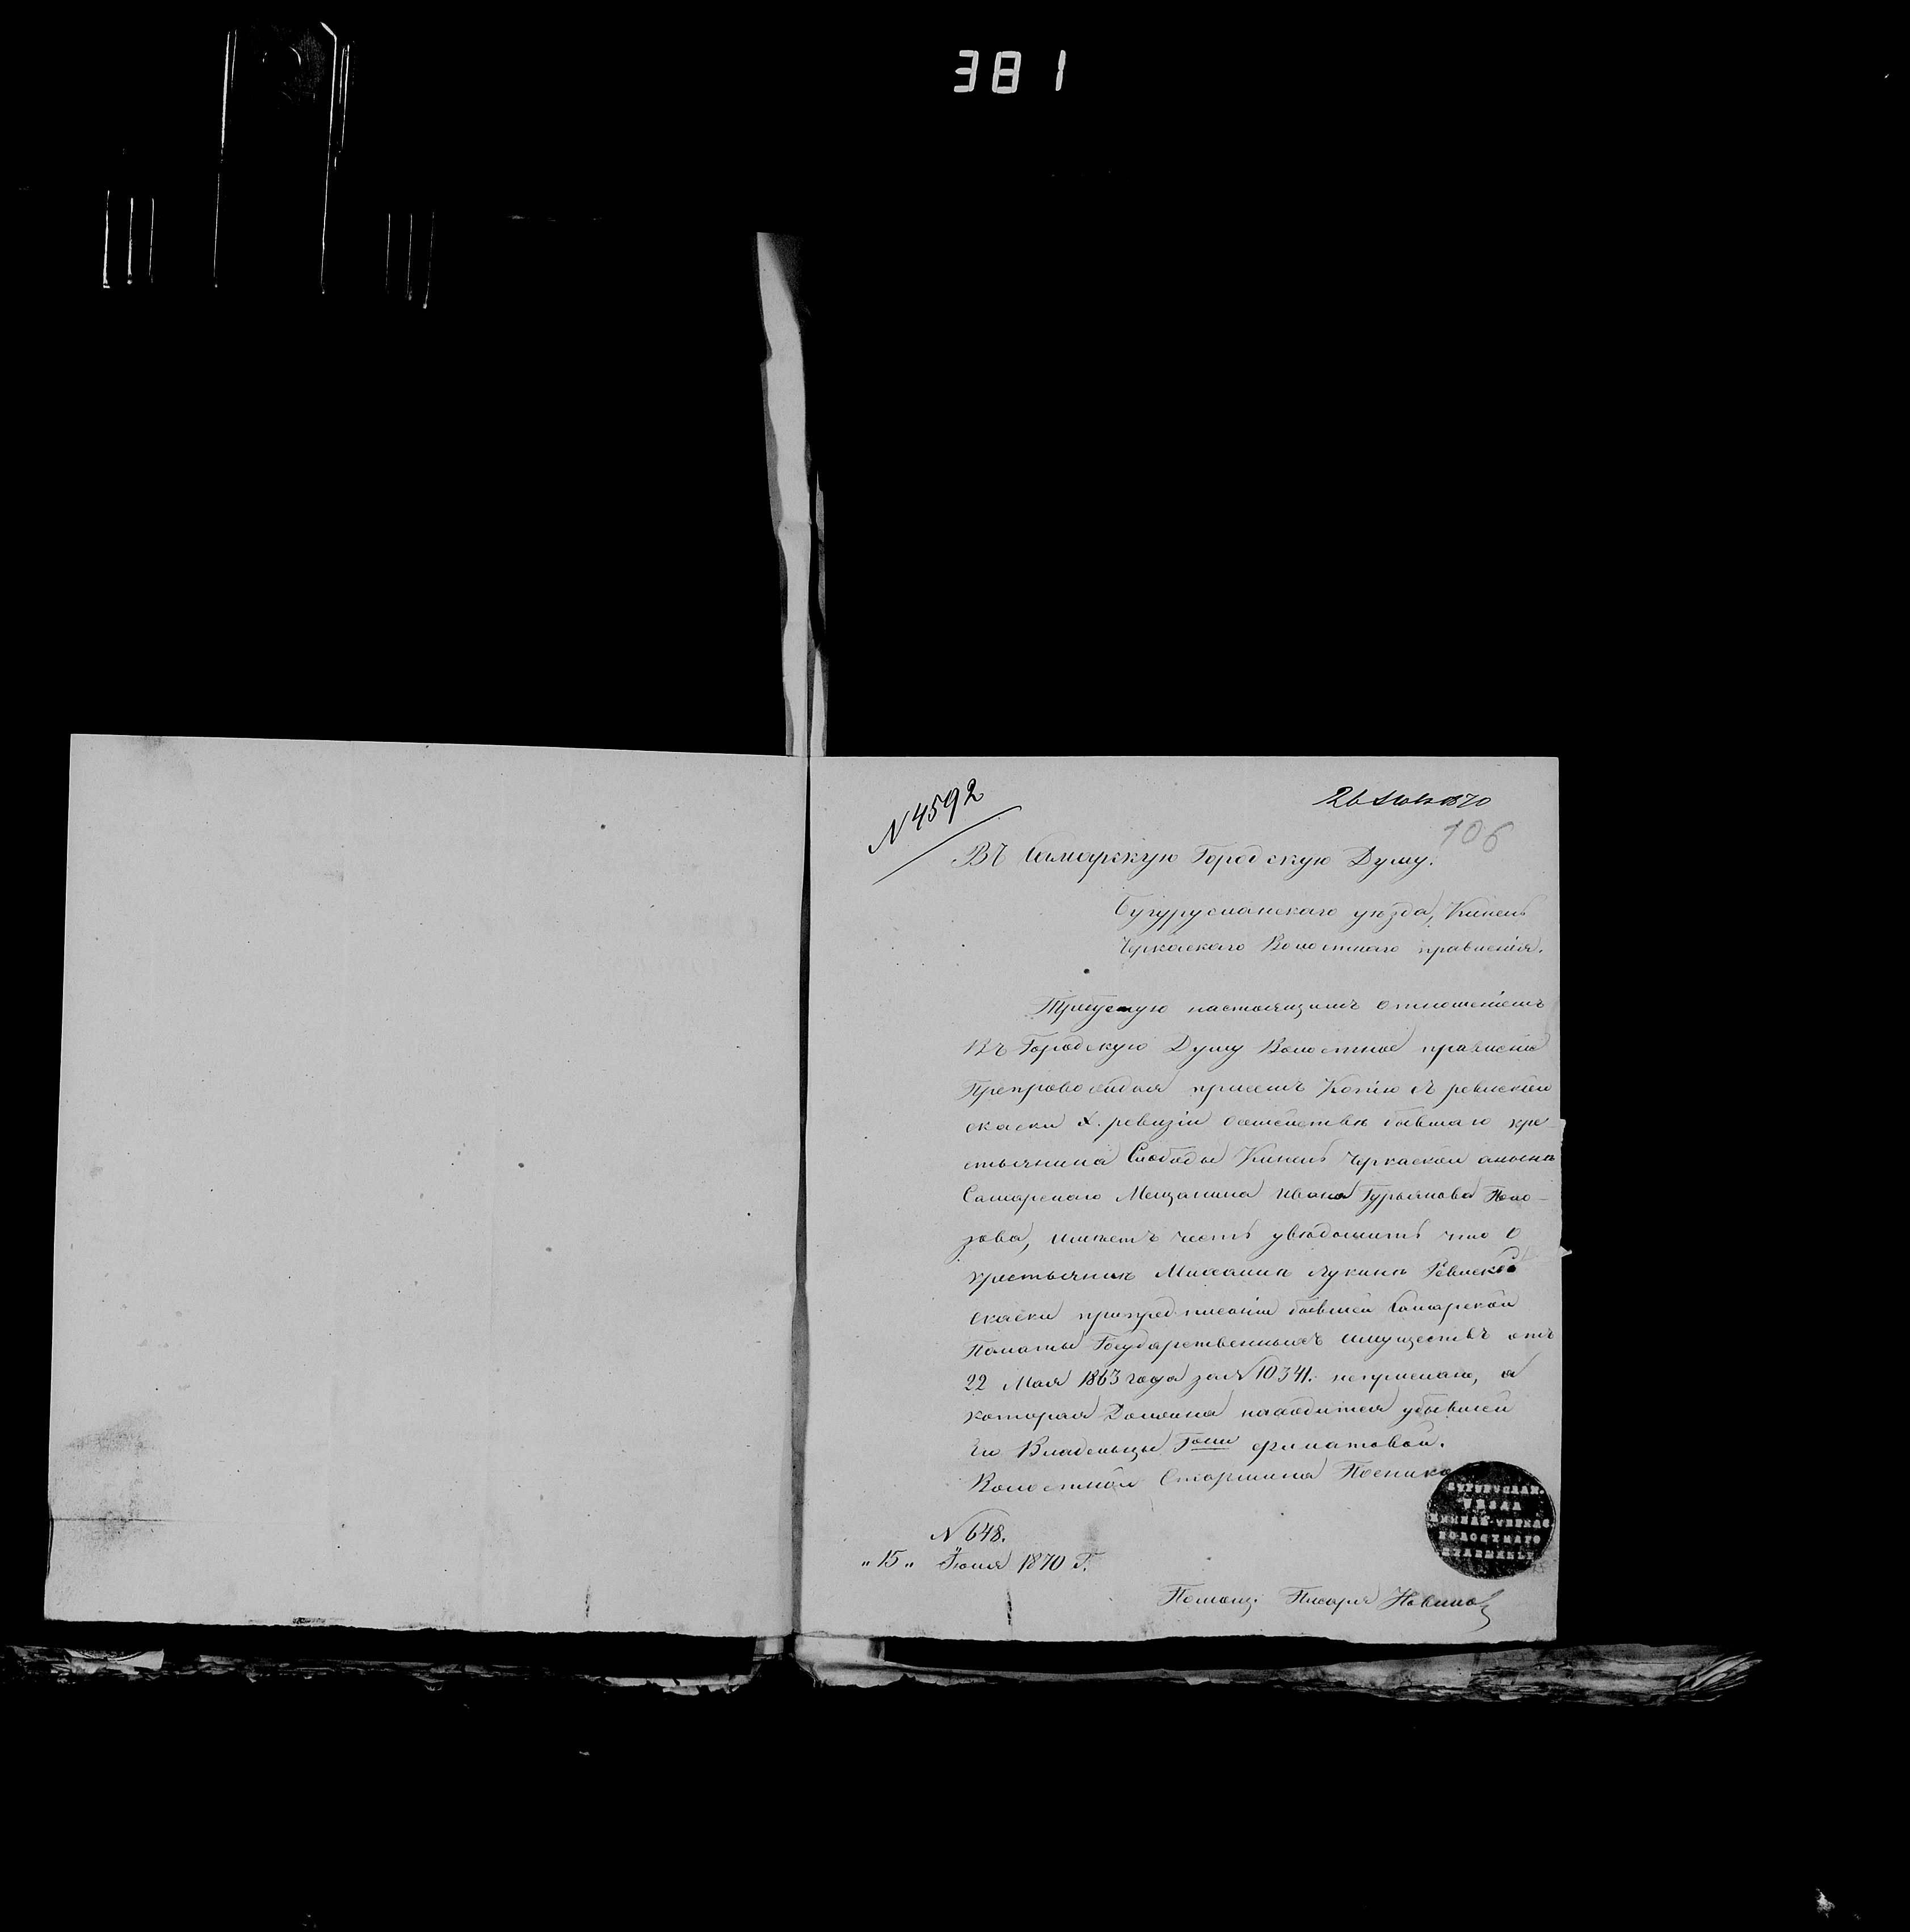 381
N 4592
26 Июня 1870
106
Въ Самарскую Городскую Думу.
Бугурусланскаго уѣзда, Кинель
Черкаскаго Волостнаго правленія.
Требуемую настоящимъ отношеніемъ
Въ Городскую Думу Волостное правленіе
Препровождая присемъ Копію съ ревиской
скаски X. ревизіи осемействѣ бывшаго кре
стьянина Слободы Кинель Черкаской анынѣ
Самарскаго Мещанина Ивана Гурьянова
зова, имѣетъ честь увѣдомить что о
крестьянинѣ Михаилѣ Лукинѣ Ревиской
скаски припредписаніи бывшей Самарской
Палаты Государственныхъ имуществъ отъ
22 Мая 1863 года за N 10341. неприслано, а
которая Должна находится убывшей
Его Владельцы Гжи Филатовой.
Волостной Старшина
N 648.
„15„ Іюня 1870 Г.
Помощ. Писаря Новиковъ
БУГУРУСЛАН.
УѢЗДА
КИНЕЛЬ-ЧЕРКАС.
ВОЛОСТНАГО
ПРАВЛЕНЬЯ